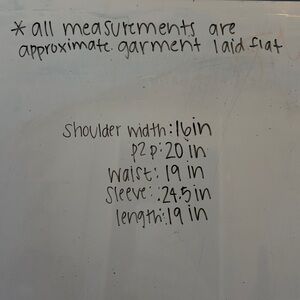 * all measurements are
approximate. garment laid flat
shoulder width: 16in
p2p: 20 in
waist: 19 in
sleeve: 24.5 in
length: 19 in